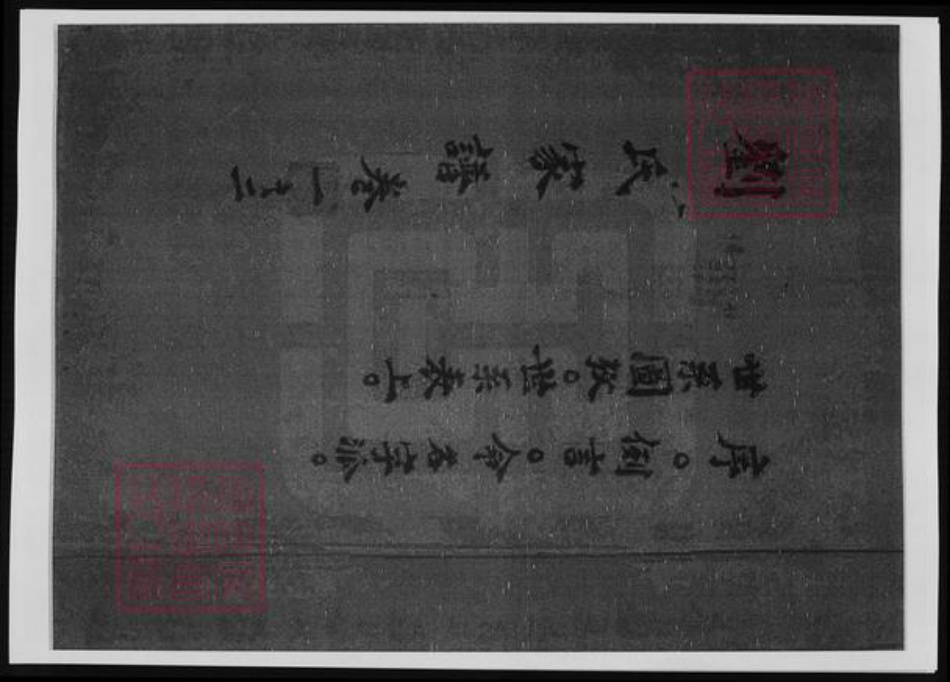 序。例言。命名字派。
世系圖攷。世系表上。
劉氏家譜卷一之二